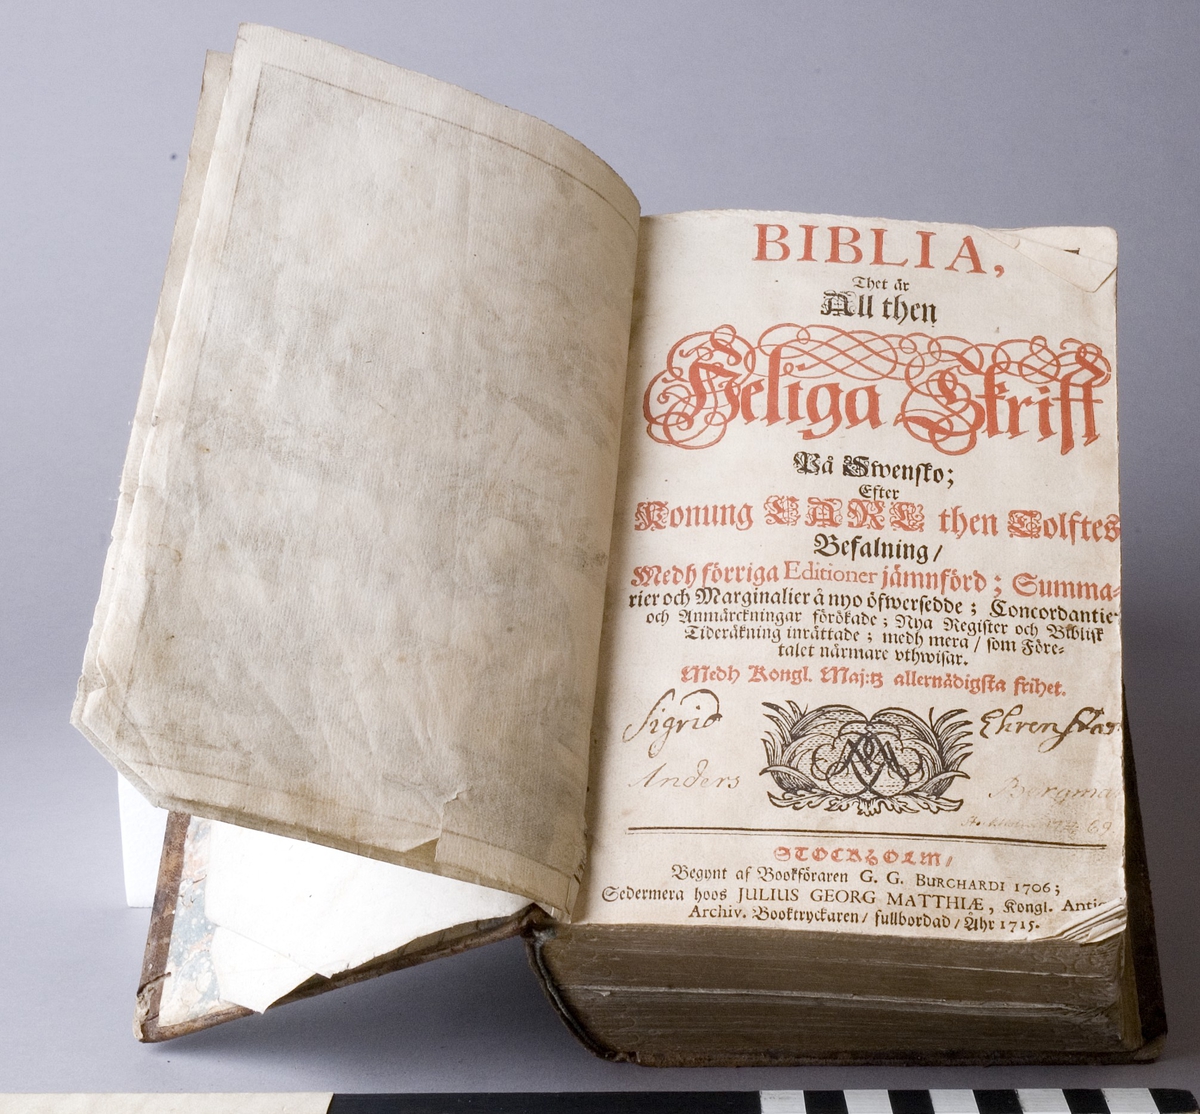 BIBLIA,
Thet är
All then
Heliga Skrift
På Swensko;
Efter
Konung CARL then Tolftes
Befalning/
Medh förriga Editioner jämnförd; Summa-
rier och Marginalier å nyo öfwersedde; Concordantie
och Anmärckningar förökade; Nya Register och Biblisk
Tideräkning inrättade; medh mera/ som Före-
talet närmare vthwisar.
Medh Kongl. Maj:tz allernådigsta frihet.
Sigrid Ehrenstar
Anders Bergma
69
STOCKHOLM/
Begynt af Bookföraren G. G. BURCHARDI 1706;
Sedermera hoos JULIUS GEORG MATTHIÆ, Kongl. Antiq
Archiv. Booktryckaren/ fullbordad/ Åhr 1715.